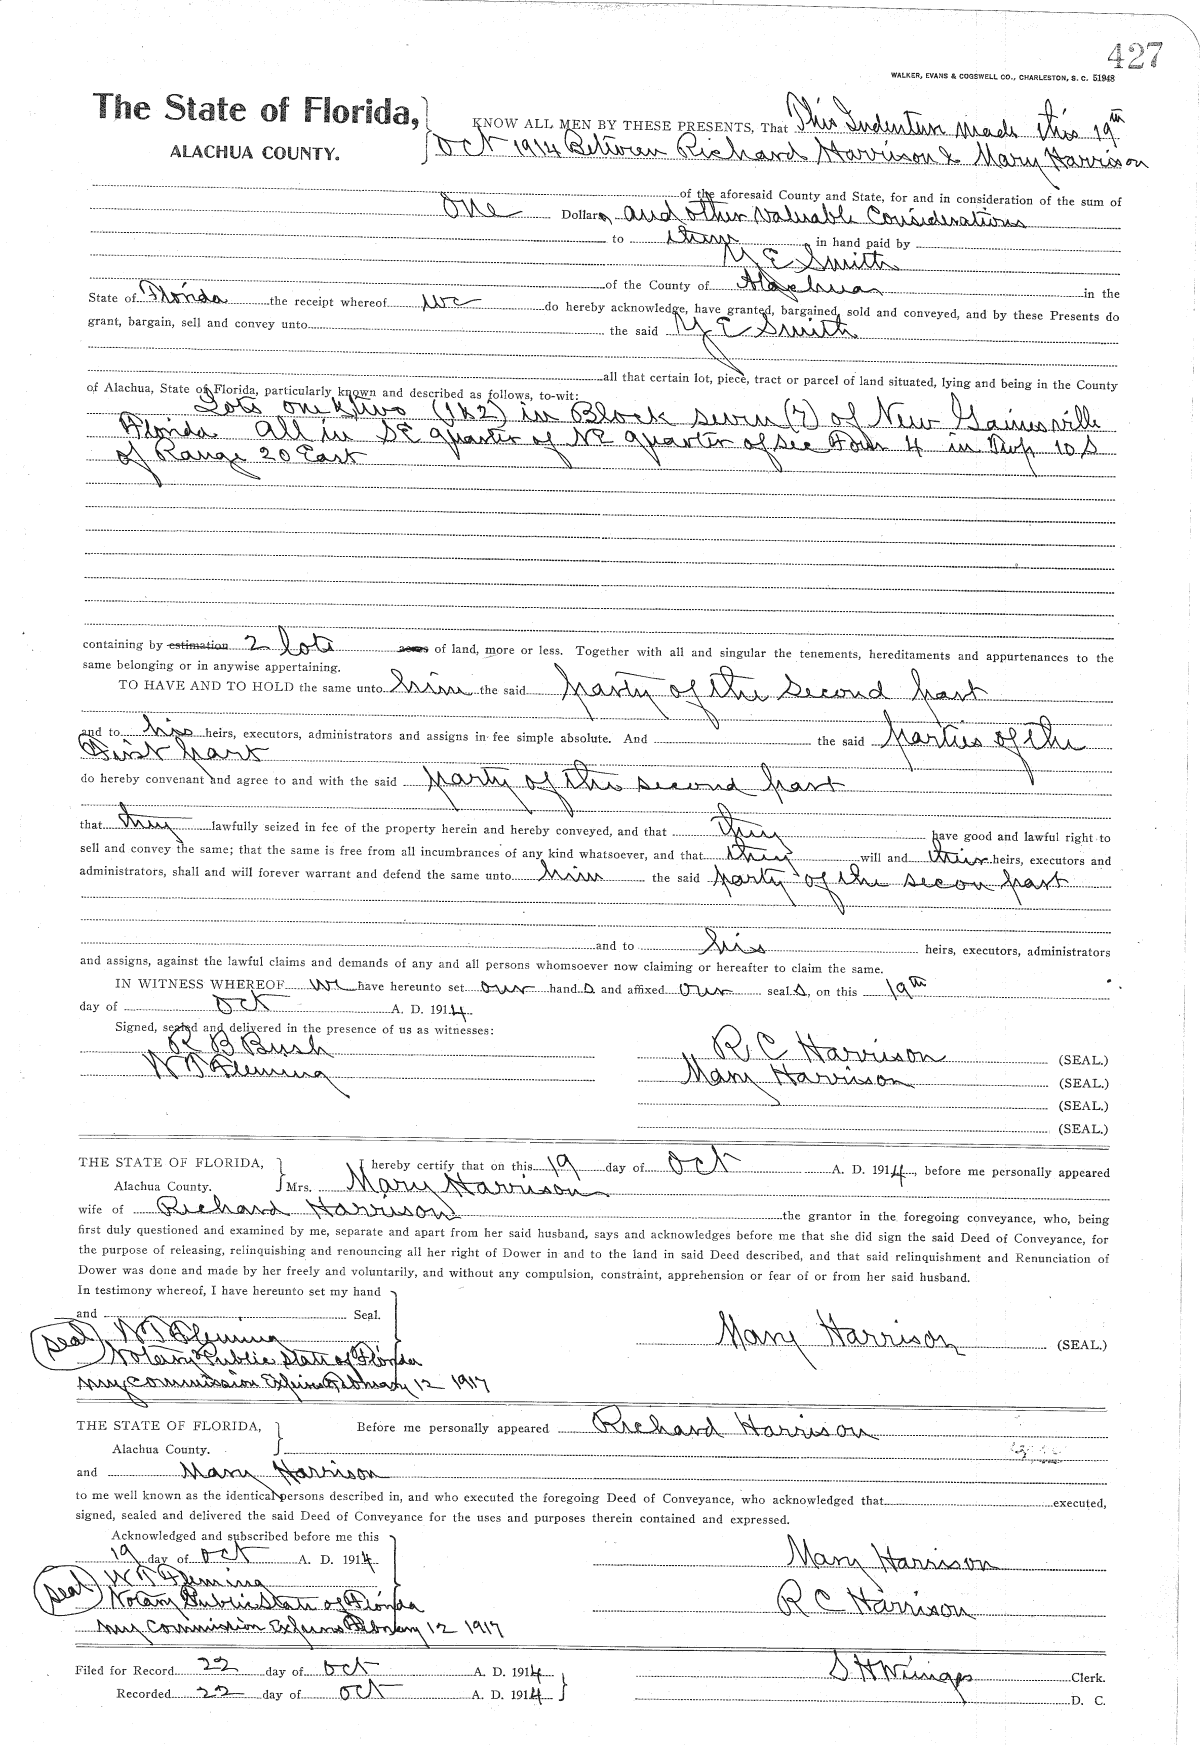 427
WALKER, EVANS & COGSWELL CO., CHARLESTON, S. C. 51948
The State of Florida,
ALACHUA COUNTY.
KNOW ALL MEN BY THESE PRESENTS, That This Indenture made this 19th
Oct 1914 Between Richard Harrison & Mary Harrison
of the aforesaid County and State, for and in consideration of the sum of
One Dollars, and other valuable Considerations
to them in hand paid by
E Smith
of the County of Alachua in the
State of Florida the receipt whereof we do hereby acknowledge, have granted, bargained, sold and conveyed, and by these Presents do
grant, bargain, sell and convey unto the said E Smith
all that certain lot, piece, tract or parcel of land situated, lying and being in the County
of Alachua, State of Florida, particularly known and described as follows, to-wit:
Lots one & two (1&2) in Block seven (7) of New Gainesville
Florida All in SE quarter of NE quarter of Sec Four 4 in Twp 10 S
of Range 20 East
containing by estimation 2 lots acres of land, more or less. Together with all and singular the tenements, hereditaments and appurtenances to the
same belonging or in anywise appertaining.
TO HAVE AND TO HOLD the same unto him the said party of the second part
and to his heirs, executors, administrators and assigns in fee simple absolute. And the said parties of the
First part
do hereby convenant and agree to and with the said party of the second part
that they lawfully seized in fee of the property herein and hereby conveyed, and that they have good and lawful right to
sell and convey the same; that the same is free from all incumbrances of any kind whatsoever, and that they will and their heirs, executors and
administrators, shall and will forever warrant and defend the same unto him the said party of the secon part
and to his heirs, executors, administrators
and assigns, against the lawful claims and demands of any and all persons whomsoever now claiming or hereafter to claim the same.
IN WITNESS WHEREOF we have hereunto set our hands and affixed our seals, on this 19th
day of Oct A. D. 1914
Signed, sealed and delivered in the presence of us as witnesses:
R B Bush
W T Fleming
R C Harrison (SEAL.)
Mary Harrison (SEAL.)
(SEAL.)
(SEAL.)
THE STATE OF FLORIDA,
Alachua County.
I hereby certify that on this 19 day of Oct A. D. 1914, before me personally appeared
Mrs. Mary Harrison
wife of Richard Harrison the grantor in the foregoing conveyance, who, being
first duly questioned and examined by me, separate and apart from her said husband, says and acknowledges before me that she did sign the said Deed of Conveyance, for
the purpose of releasing, relinquishing and renouncing all her right of Dower in and to the land in said Deed described, and that said relinquishment and Renunciation of
Dower was done and made by her freely and voluntarily, and without any compulsion, constraint, apprehension or fear of or from her said husband.
In testimony whereof, I have hereunto set my hand
and Seal.
Seal W T Fleming
Notary Public State of Florida
My Commission Expires February 12 1917
Mary Harrison (SEAL.)
THE STATE OF FLORIDA,
Alachua County.
Before me personally appeared Richard Harrison
and Mary Harrison
to me well known as the identical persons described in, and who executed the foregoing Deed of Conveyance, who acknowledged that executed,
signed, sealed and delivered the said Deed of Conveyance for the uses and purposes therein contained and expressed.
Acknowledged and subscribed before me this
19 day of Oct A. D. 1914
Seal W T Fleming
Notary Public State of Florida
My Commission Expires February 12 1917
Mary Harrison
R C Harrison
Filed for Record 22 day of Oct A. D. 1914
Recorded 22 day of Oct A. D. 1914
S H Wienges Clerk.
D. C.